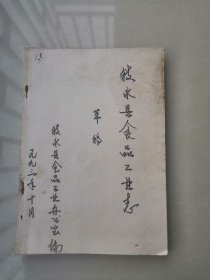 13
䢺水县食品工业志
草稿
䢺水县食品工业办公室编
一九九二年十月